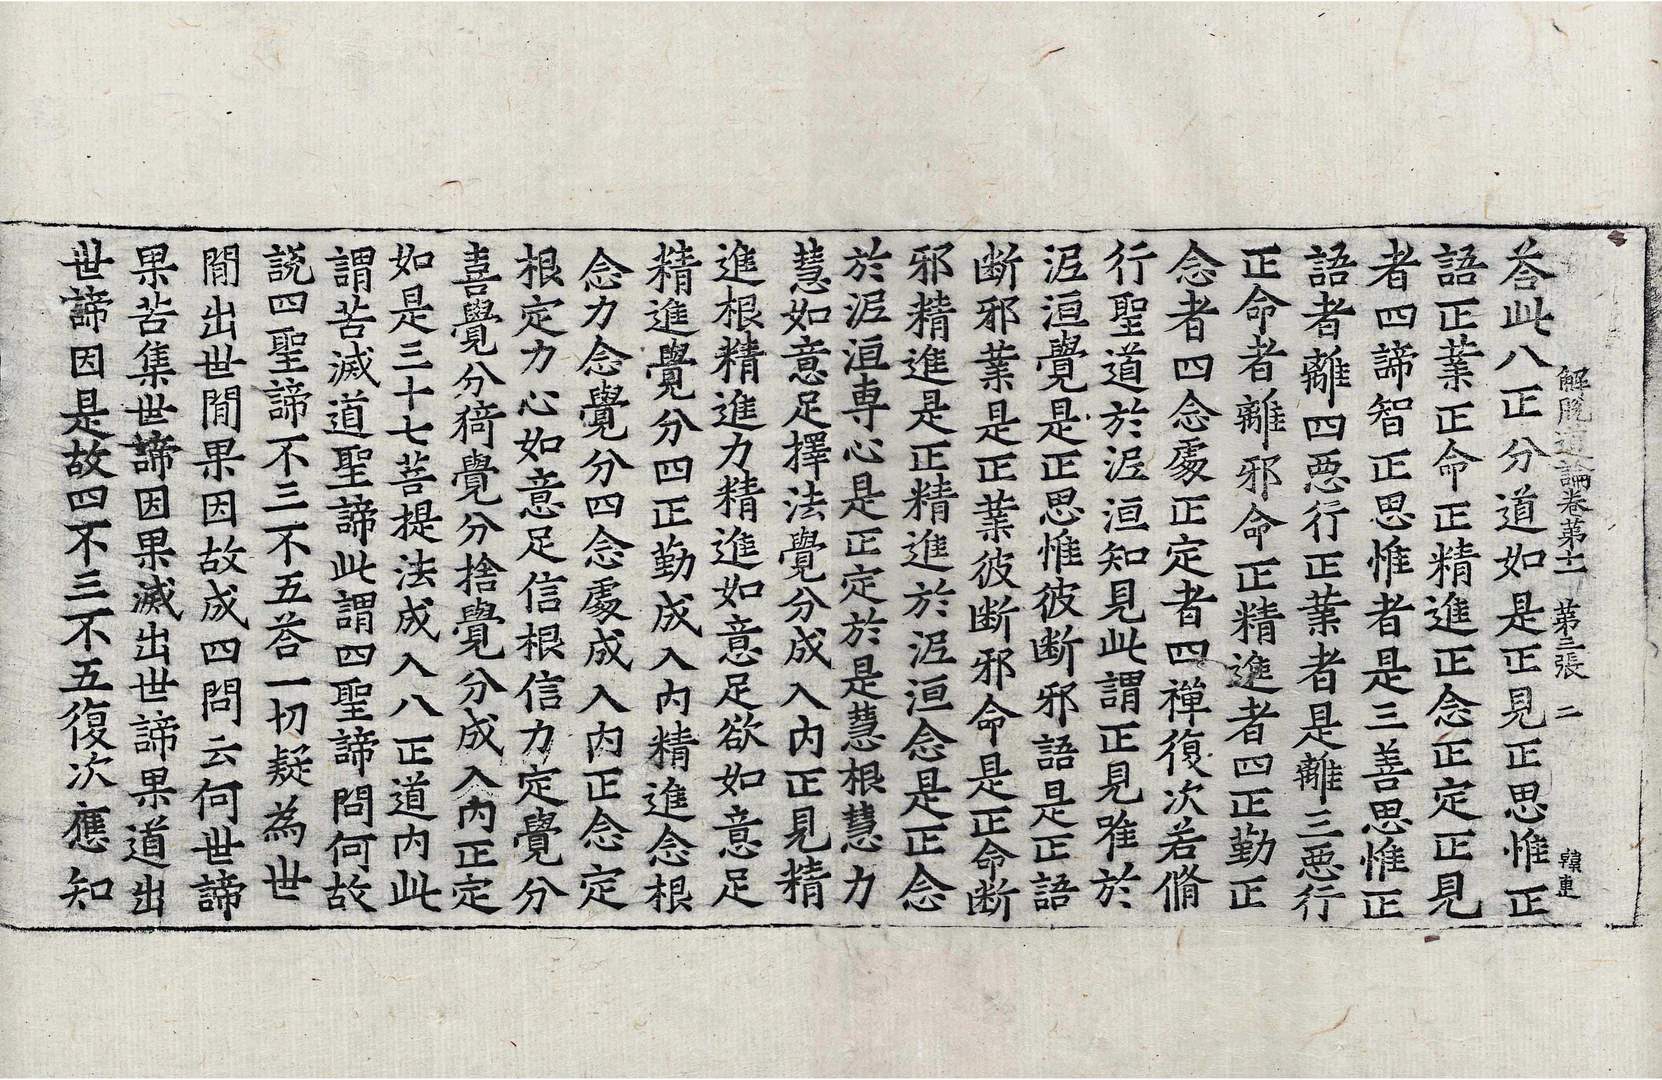 解脫道論卷第十一 第三張 二 韓連
荅此八正分道如是正見正思惟正
語正業正命正精進正念正定正見
者四諦智正思惟者是三善思惟正
語者離四惡行正業者是離三惡行
正命者離邪命正精進者四正勤正
念者四念處正定者四禪復次若脩
行聖道於泥洹知見此謂正見唯於
泥洹覺是正思惟彼斷邪語是正語
斷邪業是正業彼斷邪命是正命斷
邪精進是正精進於泥洹念是正念
於泥洹專心是正定於是慧根慧力
慧如意足擇法覺分成入內正見精
進根精進力精進如意足欲如意足
精進覺分四正勤成入內精進念根
念力念覺分四念處成入內正念定
根定力心如意足信根信力定覺分
喜覺分猗覺分捨覺分成入內正定
如是三十七菩提法成入八正道內此
謂苦滅道聖諦此謂四聖諦問何故
說四聖諦不三不五荅一切疑為世
間出世間果因故成四問云何世諦
果苦集世諦因果滅出世諦果道出
世諦因是故四不三不五復次應知